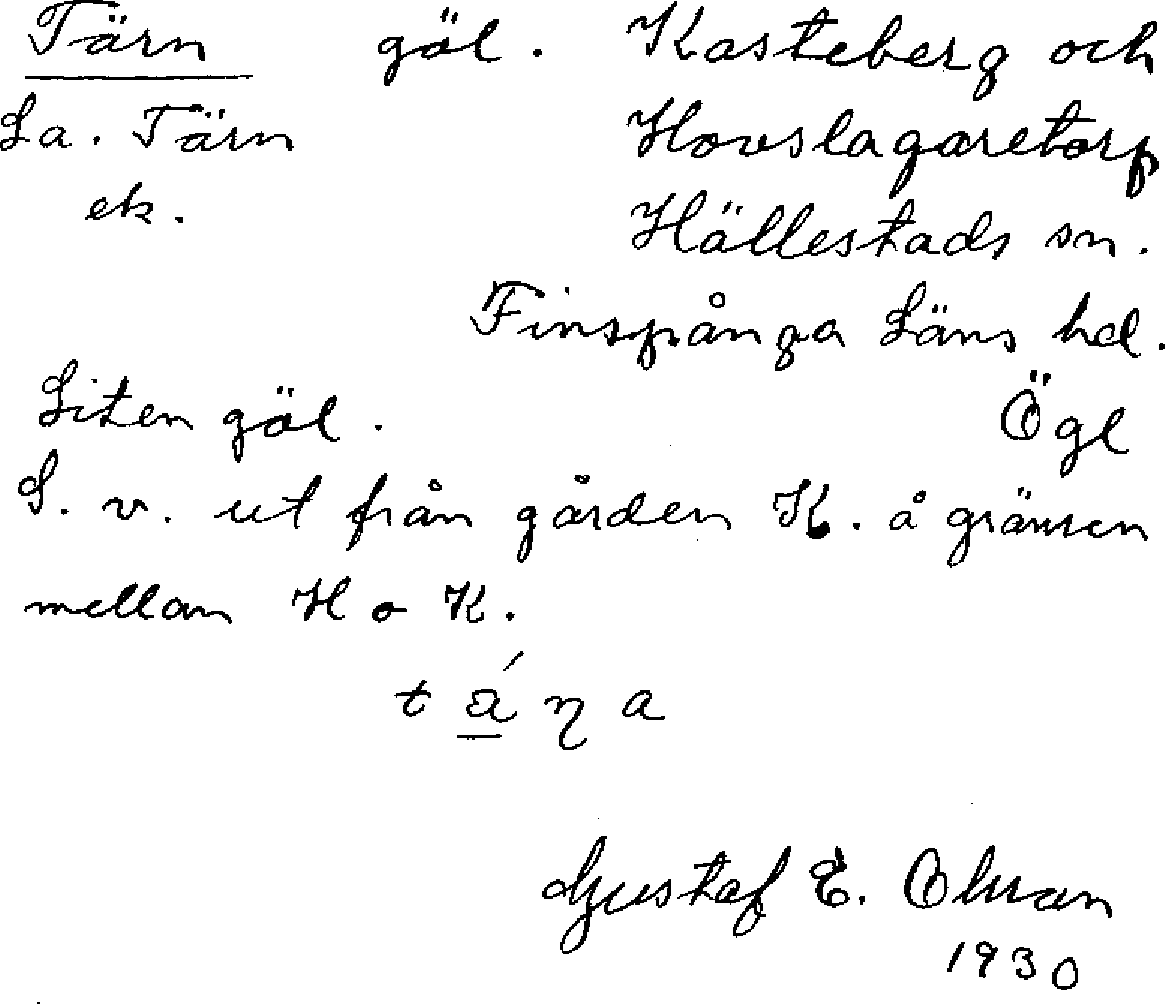 Tärn göl. Kasteberg och
La. Tärn Hovslagaretorp
ek. Hällestads sn.
Finspånga Läns hd.
Liten göl. Ögl
S. v. ut från gården K. å gränsen
mellan H o K.
t á̱ η a
Gustaf E. Ohman
1930